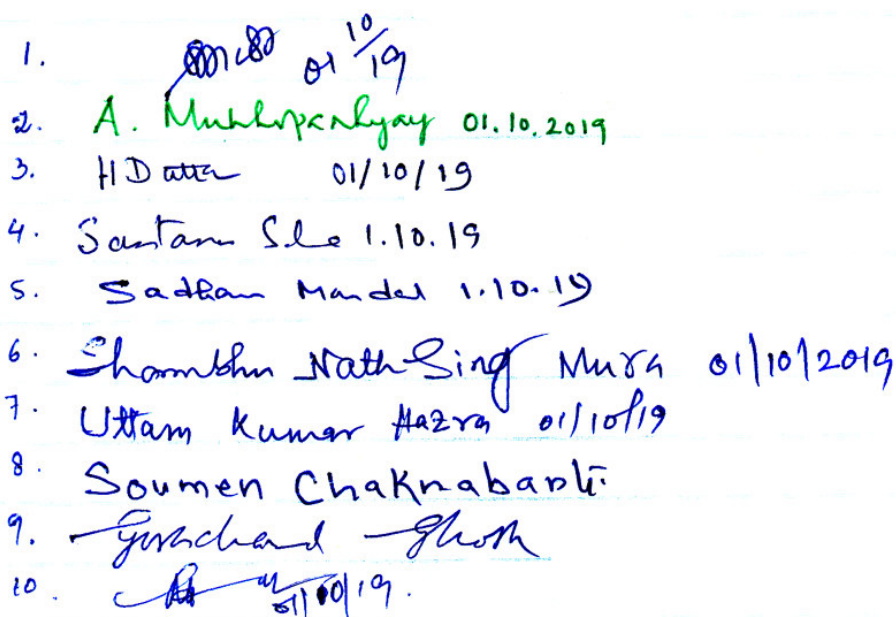 1. 01 10/19
2. A. Mukhopadhyay 01.10.2019
3. H Datta 01/10/19
4. Santanu 1.10.19
5. Sadhan Mandal 1.10.19
6. Shambhu Nath Sing Mura 01/10/2019
7. Uttam Kumar Hazra 01/10/19
8. Soumen Chakrabarti
9. Gorachand Ghosh
10. 01/10/19.